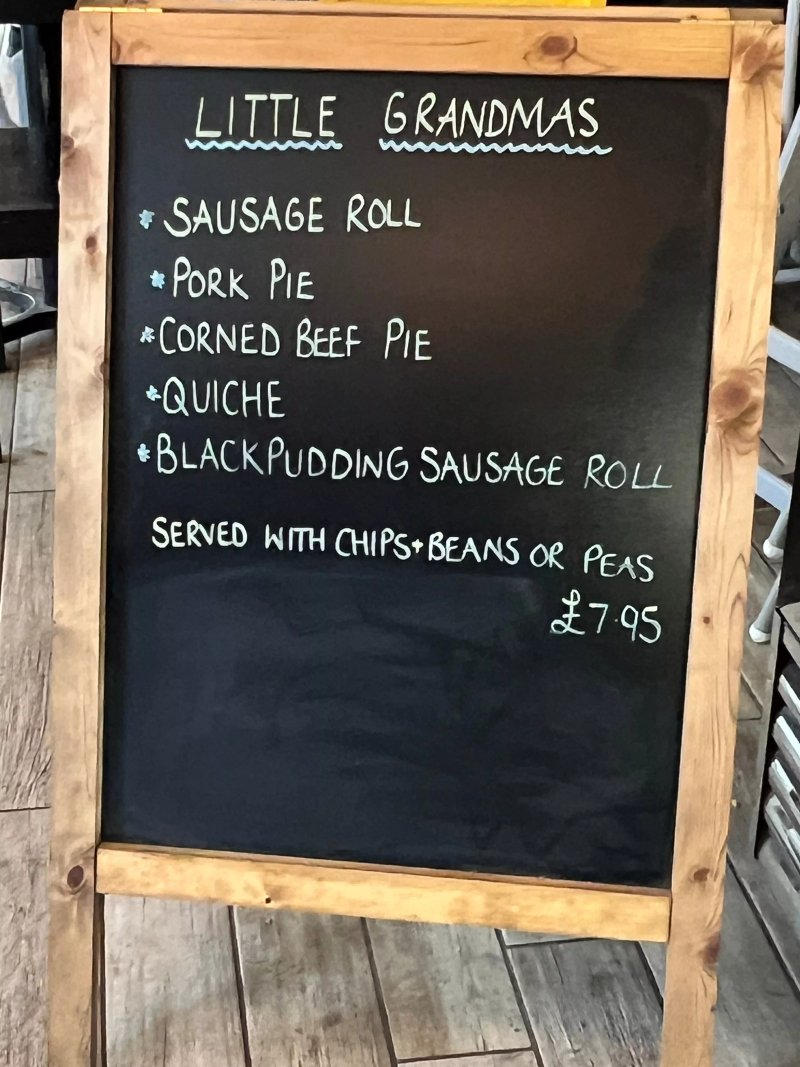 LITTLE GRANDMAS
* SAUSAGE ROLL
* PORK PIE
* CORNED BEEF PIE
* QUICHE
* BLACKPUDDING SAUSAGE ROLL
SERVED WITH CHIPS + BEANS OR PEAS
£7.95